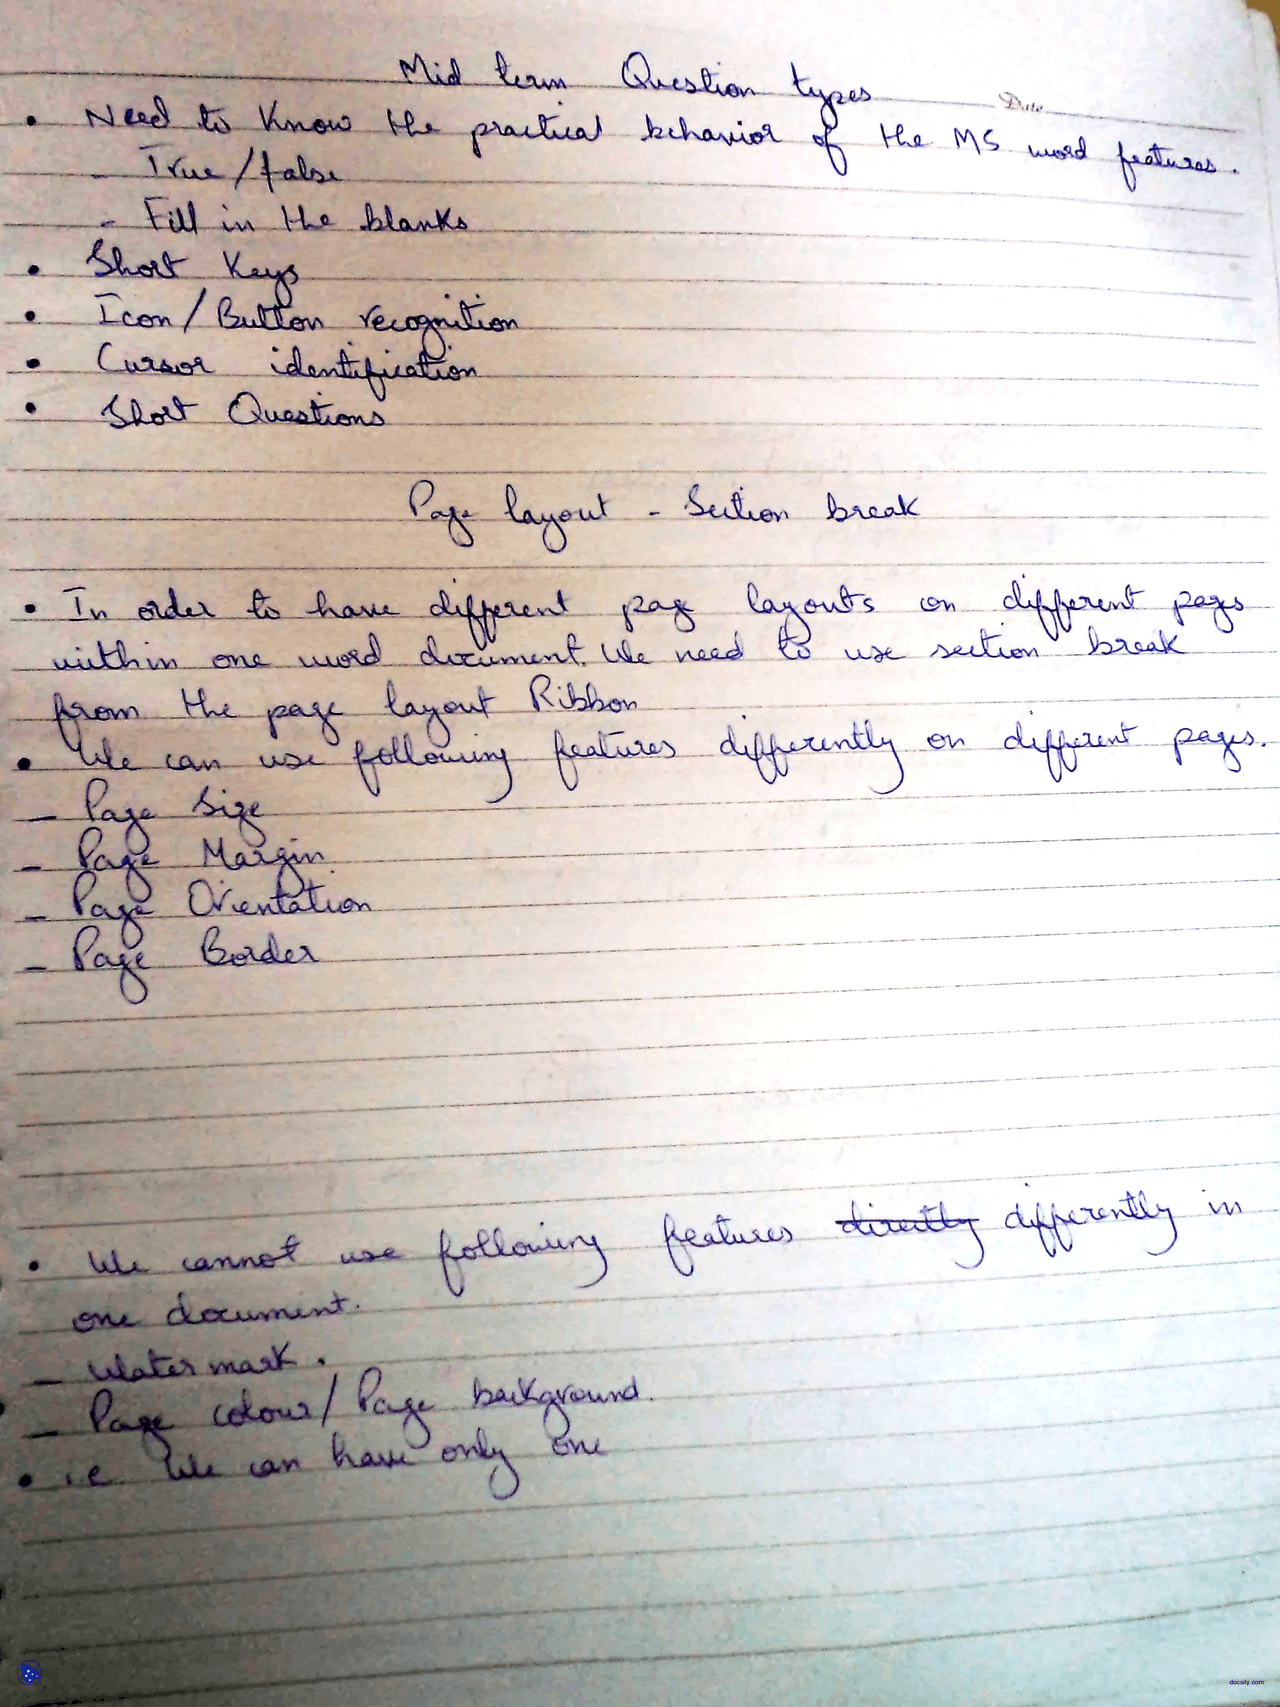 Mid term Question types
Date
• Need to Know the practical behavior of the MS word features.
- True/false
- Fill in the blanks
• Short Keys
• Icon/Button recognition
• Cursor identification
• Short Questions
Page layout - Section break
• In order to have different page layouts on different pages
within one word document. We need to use section break
from the page layout Ribbon
• We can use following features differently on different pages.
- Page Size
- Page Margin
- Page Orientation
- Page Border
• We cannot use following features directly differently in
one document.
- Water mark.
- Page colour/Page background.
• i.e We can have only one
docsity.com